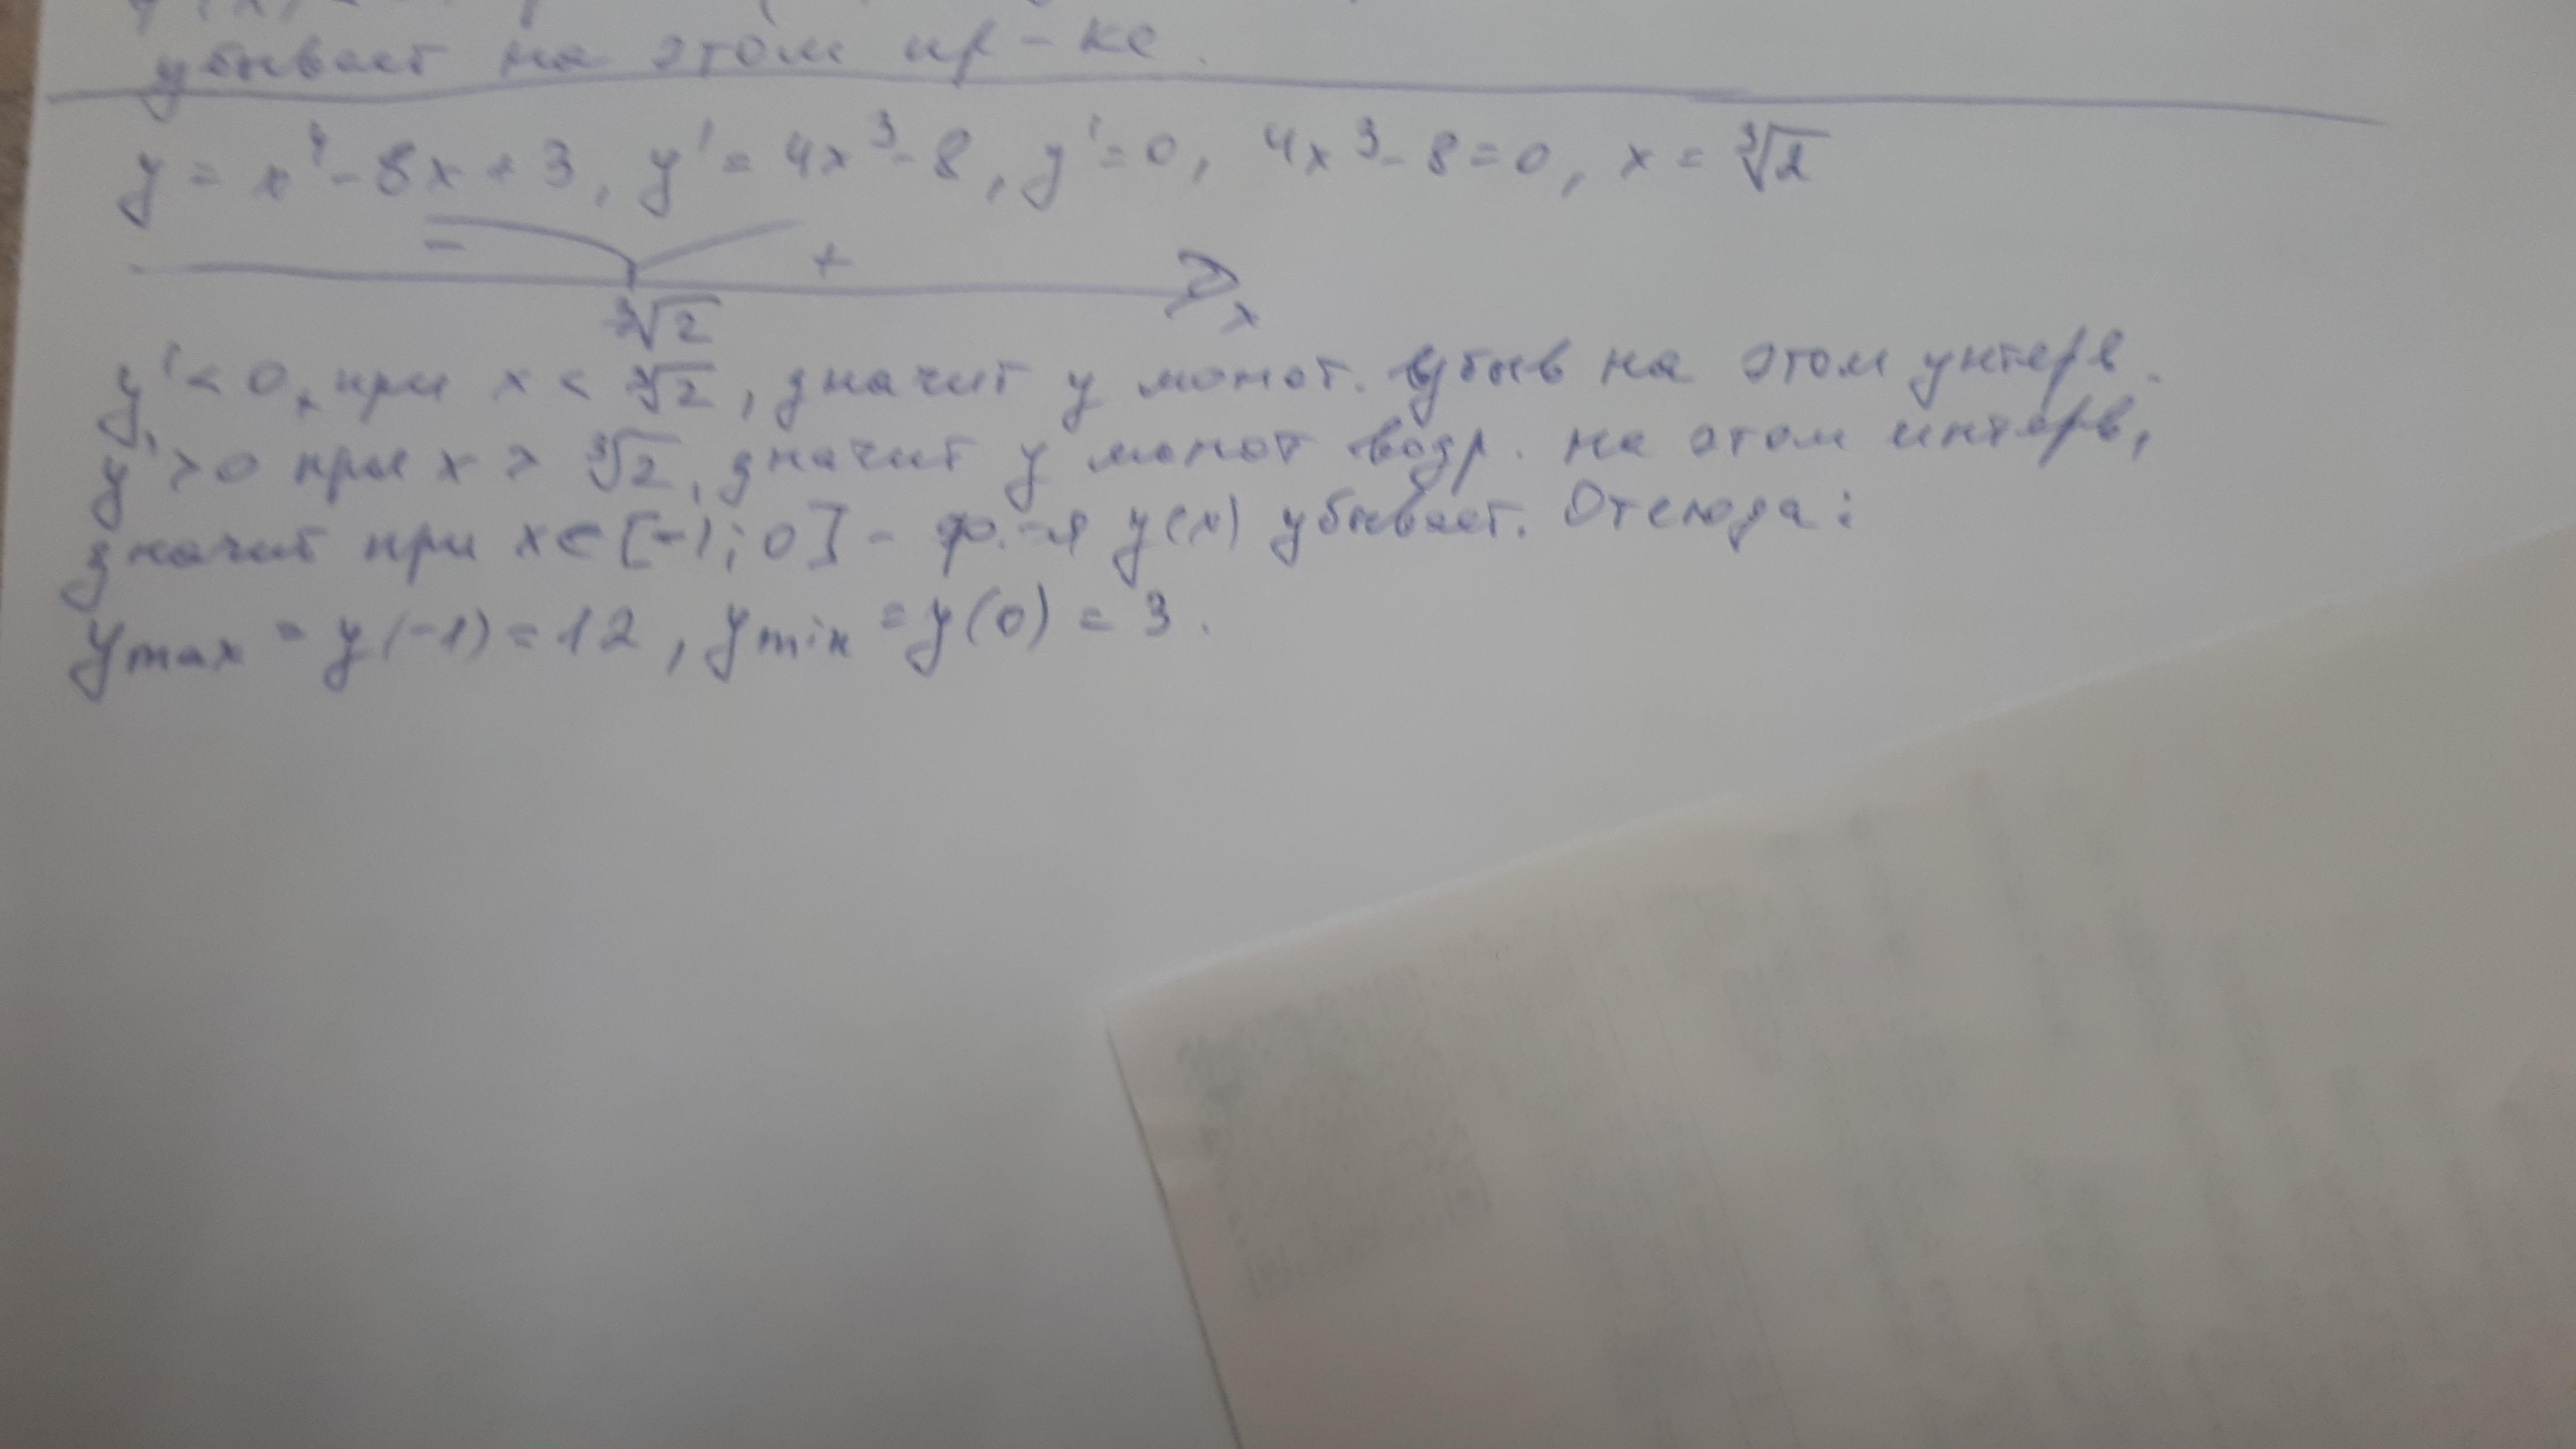 убывает на этом пр-ке.
y = x⁴ - 8x + 3, y' = 4x³ - 8, y' = 0, 4x³ - 8 = 0, x = ∛2
- +
∛2 x
y' < 0, при x < ∛2, значит y монот. убыв на этом унтерв.
y' > 0 при x > ∛2, значит y монот возр. на этом интерв,
значит при x ∈ [-1; 0] - ф.-я y(x) убывает. Отсюда:
y max = y(-1) = 12, y min = y(0) = 3.